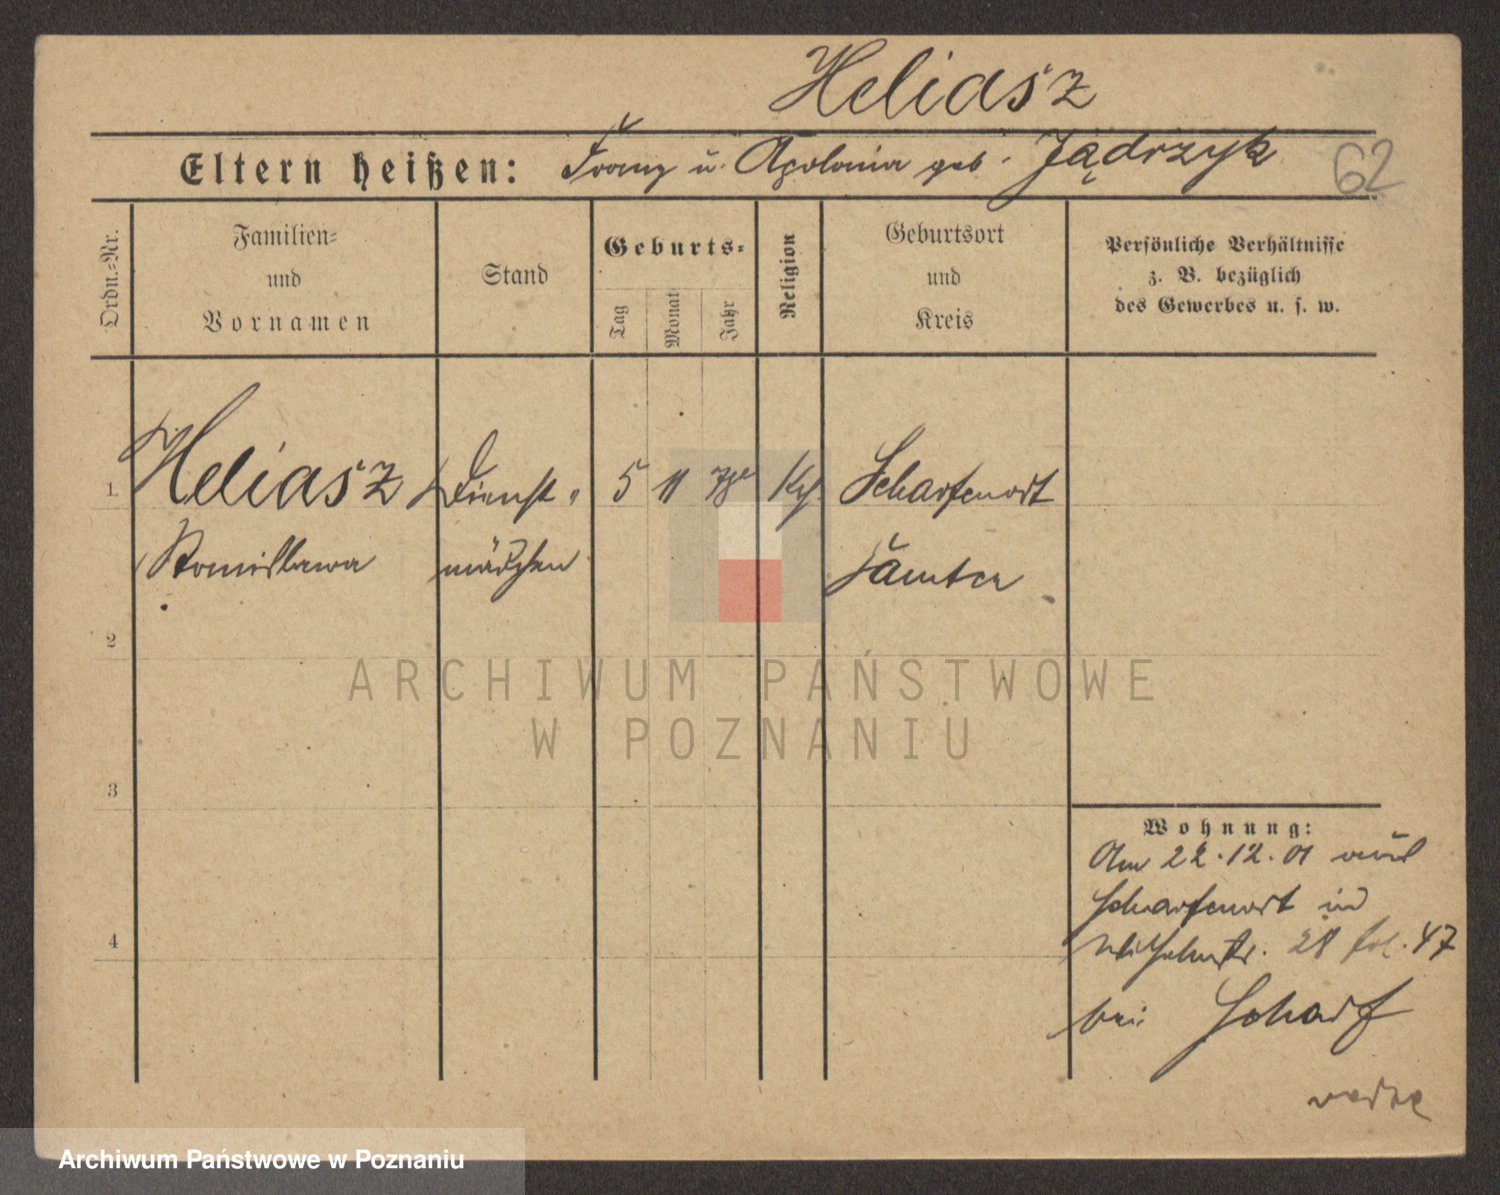 Heliasz
Eltern heißen: Franz u. Apolonia geb. Jądrzyk
62
Ordn.=Nr.
Familien=
und
Vornamen
Stand
Geburts=
Tag
Monat
Jahr
Religion
Geburtsort
und
Kreis
Persönliche Verhältnisse
z. B. bezüglich
des Gewerbes u. s. w.
1 Heliasz Dienst= 5 11 Scharfenort
Stanislawa mädchen Samter
2
3
4
Wohnung:
Am 22.12.01 aus
Scharfenort in
Wilhelmstr. 28 fol. 47
bei Scharf
ARCHIWUM PAŃSTWOWE
W POZNANIU
Archiwum Państwowe w Poznaniu